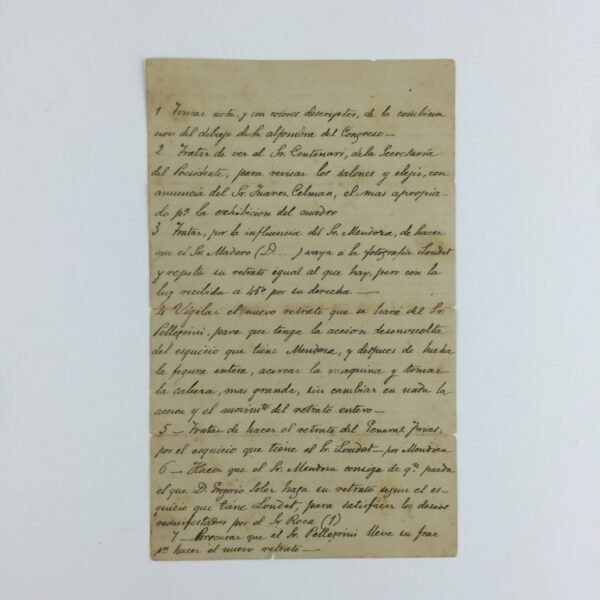 1 Tomar nota, y con colores descriptos, de la combina
cion del dibujo de la alfombra del Congreso —
2 Tratar de ver al Sr. Centenari, de la Secretaría
del Presidente, para revisar los salones y elejir, con
anuencia del Sr. Juarez Celman, el mas apropia-
do pª la exhibicion del cuadro
3 Tratar, por la influencia del Sr. Mendoza, de hacer
que el Sr. Madero (D. ...) vaya á la fotografia Loudet
y repita su retrato igual al que hay, pero con la
luz recibida á 45º por su derecha —
4 Vigilar el nuevo retrato que se hará del Sr.
Pellegrini, para que tenga la accion desenvuelta
del esquicio que tiene Mendoza, y despues de hecha
la figura entera, acercar la maquina y tomar
la cabeza, mas grande, sin cambiar en nada la
accion y el movimto del retrato entero —
5 — Tratar de hacer el retrato del General
por el esquicio que tiene el Sr. Loudet — por Mendoza
6 — Hacer que el Sr. Mendoza consiga de qn pueda
el que D. Gregorio Soler haga su retrato segun el es-
quicio que tiene Loudet, para satisfacer los deseos
manifestados por el Sr Roca (1)
7 — Procurar que el Sr. Pellegrini lleve su frac
pª hacer el nuevo retrato —